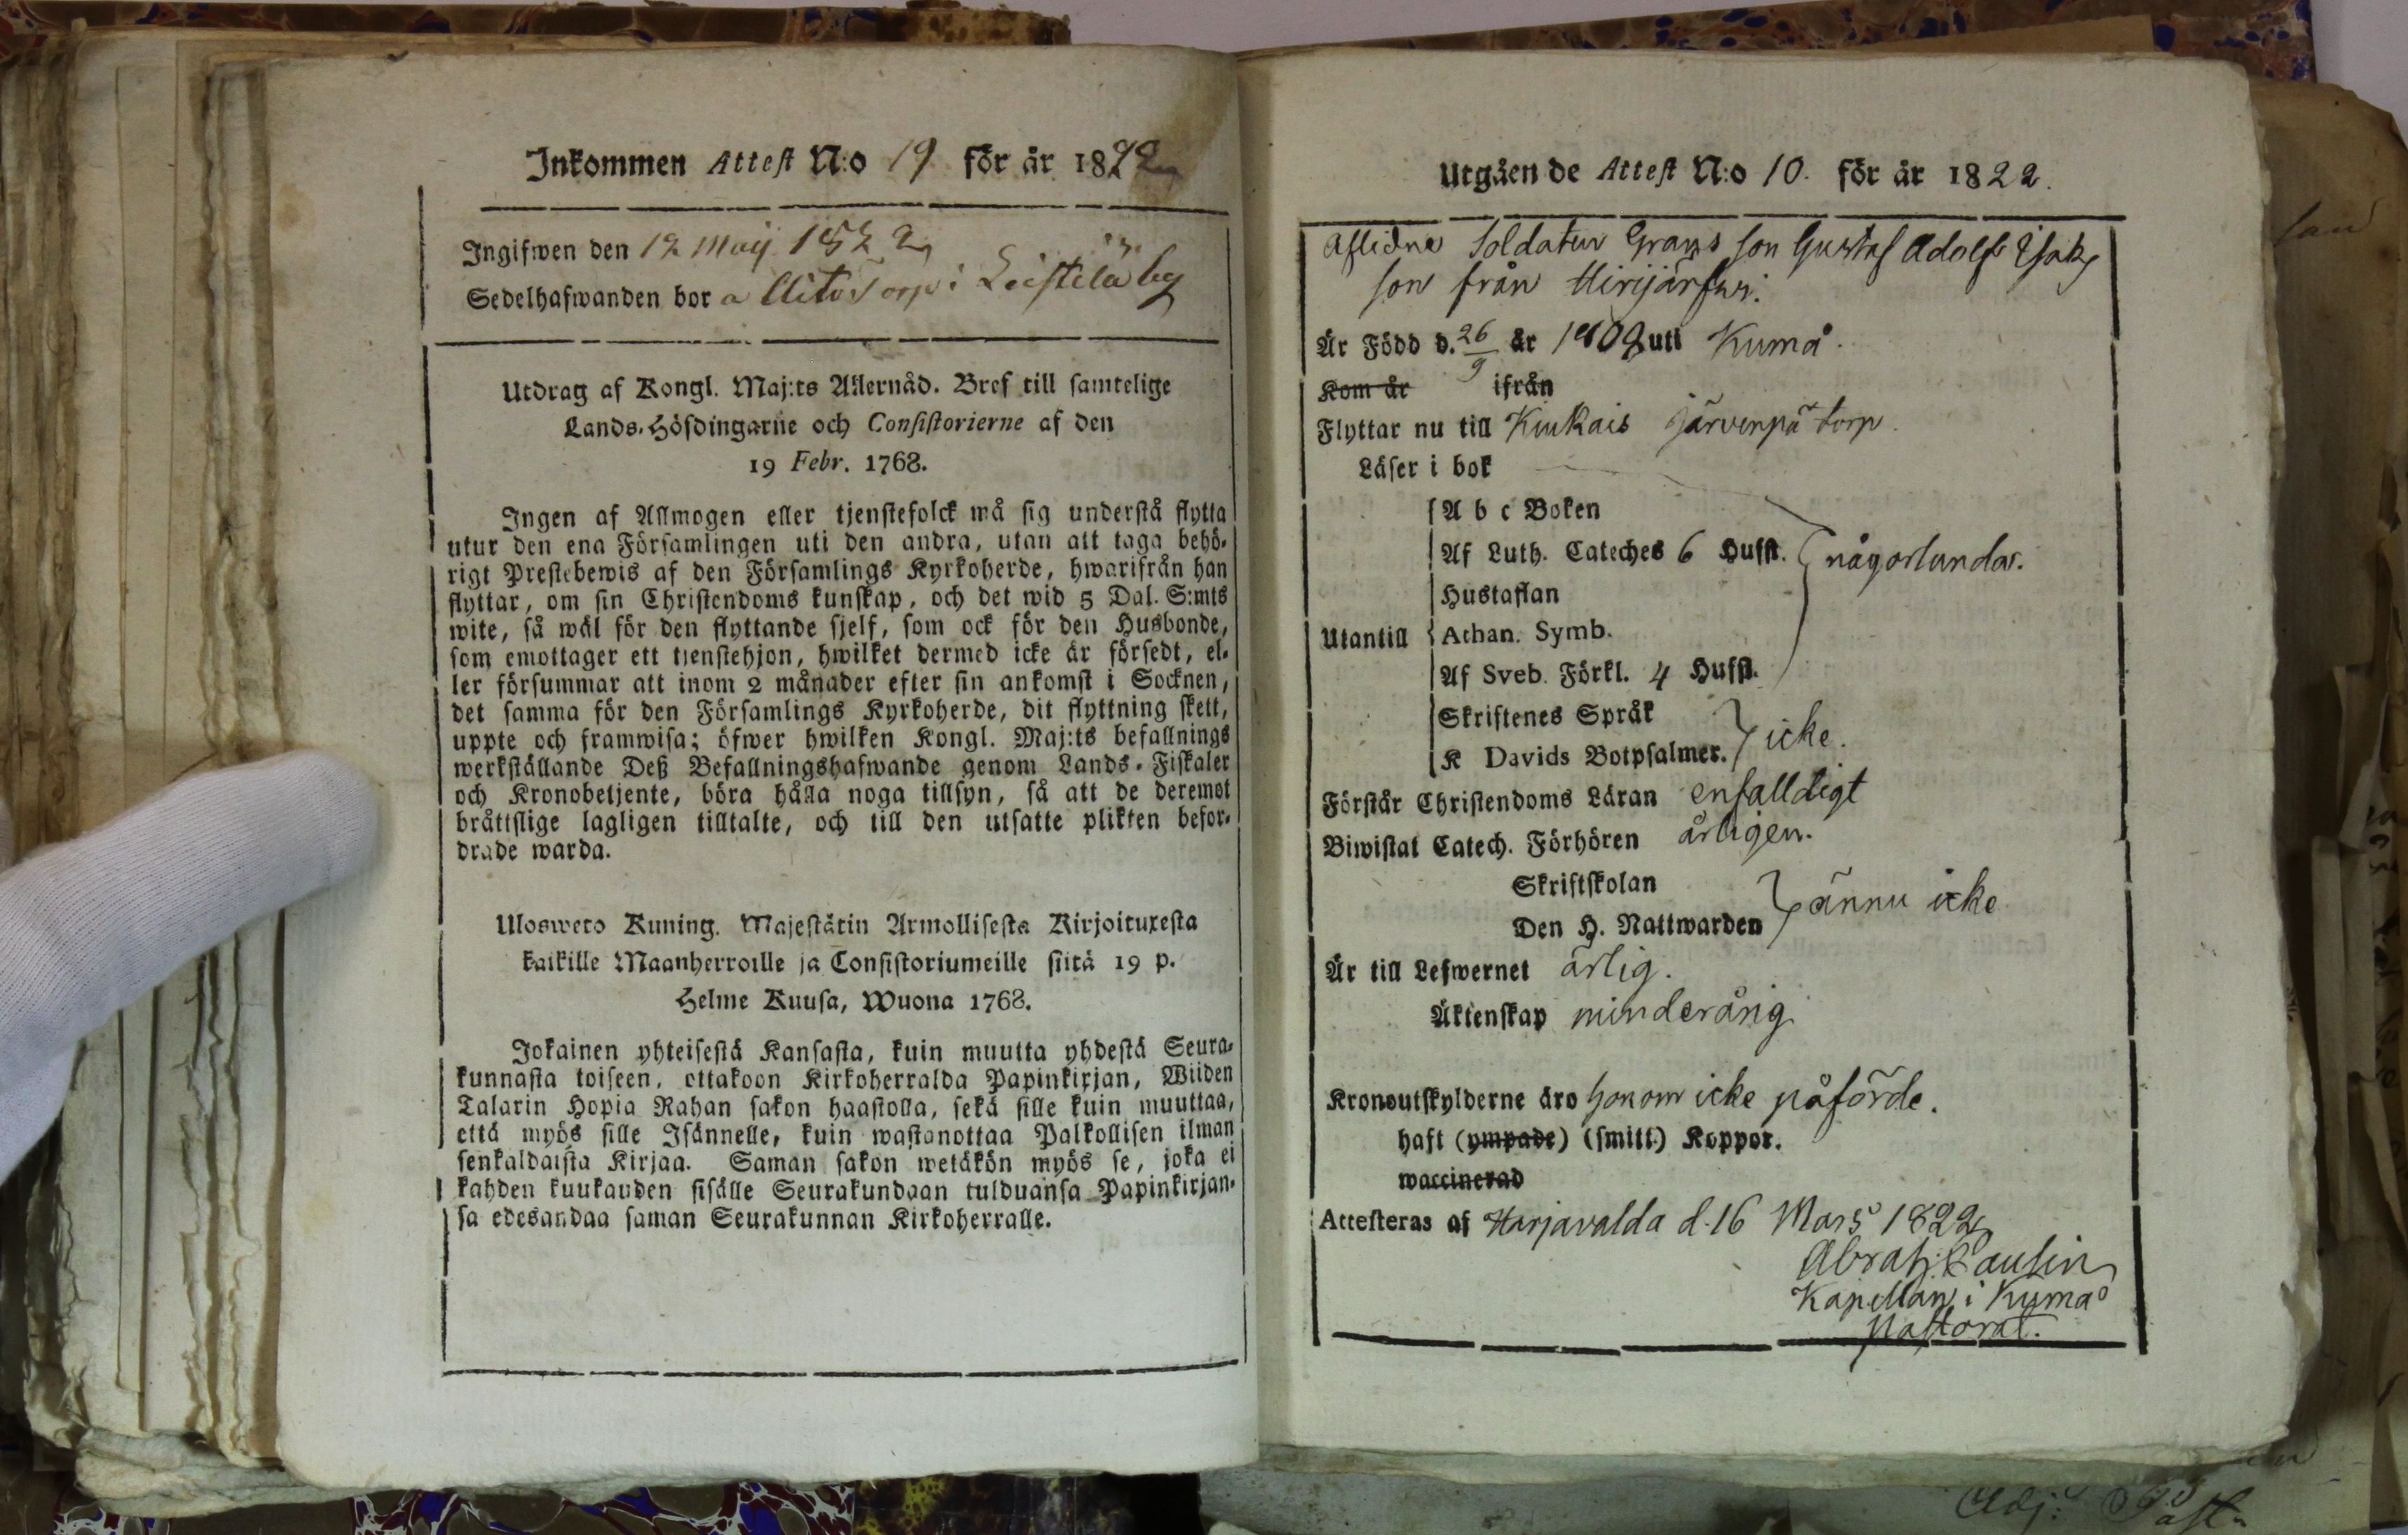 Inkommen Attest N:o 19 för år 1822
Ingifwen den 12 Maij 1822
Sedelhafwanden bor a torp i Leistilä by
Utdrag af Kongl. Maj:ts Allernåd. Bref till samtelige
Lands-Höfdingarne och Consistorierne af den
19 Febr. 1768.
Ingen af Allmogen eller tjenstefolck må sig understå flytta
utur den ena Församlingen uti den andra, utan att taga behö-
rigt Prestebewis af den Församlings Kyrkoherde, hwarifrån han
flyttar, om sin Christendoms kunskap, och det wid 5 Dal. S:mts
wite, så wäl för den flyttande sjelf, som ock för den Husbonde,
som emottager ett tjenstehjon, hwilket dermed icke är försedt, el-
ler försummar att inom 2 månader efter sin ankomst i Socknen,
det samma för den Församlings Kyrkoherde, dit flyttning skett,
uppte och framwisa; öfwer hwilken Kongl. Maj:ts befallnings
werkställande Deß Befallningshafwande genom Lands-Fiskaler
och Kronobetjente, böra hålla noga tillsyn, så att de deremot
bråttslige lagligen tilltalte, och till den utsatte plikten befor-
drade warda.
Ulosweto Kuning. Majestätin Armollisesta Kirjoituxesta
kaikille Maanherroille ja Consistoriumeille siitä 19 p.
Helme Kuusa, Wuona 1768.
Jokainen yhteisestä Kansasta, kuin muutta yhdestä Seura-
kunnasta toiseen, ottakoon Kirkoherralda Papinkirjan, Wiiden
Talarin Hopia Rahan sakon haastolla, sekä sille kuin muuttaa,
että myös sille Isännelle, kuin wastanottaa Palkollisen ilman
senkaldaista Kirjaa. Saman sakon wetäkön myös se, joka ei
kahden kuukauden sisälle Seurakundaan tulduansa Papinkirjan-
sa edesandaa saman Seurakunnan Kirkoherralle.
Utgåen de Attest N:o 10. för år 1822.
Aflidne Soldaten Grans son Gustaf Adolf Isaks
son från Hirijärfvi.
Är Född d. 26/9 år 1809 uti Kumå.
Kom år ifrån
Flyttar nu till Kiukais Järvenpä torp.
Läser i bok
A b c Boken
Af Luth. Cateches 6 Hufst. någorlunda.
Hustaflan
Utantill Athan. Symb.
Af Sveb. Förkl. 4 Hufst.
Skriftenes Språk
K Davids Botpsalmer. icke.
Förstår Christendoms Läran enfalldigt
Biwistat Catech. Förhören årligen.
Skriftskolan
Den H. Nattwarden ännu icke
Är till Lefwernet ärlig.
Äktenskap minderårig
Kronoutskylderne äro honom icke påförde.
haft (ympade) (smitt.) Koppor.
waccinerad
Attesteras af Harjavalda d. 16 Mars 1822
Abrah: Paulin
Kapellan i Kumå
pastorat.
Adj: